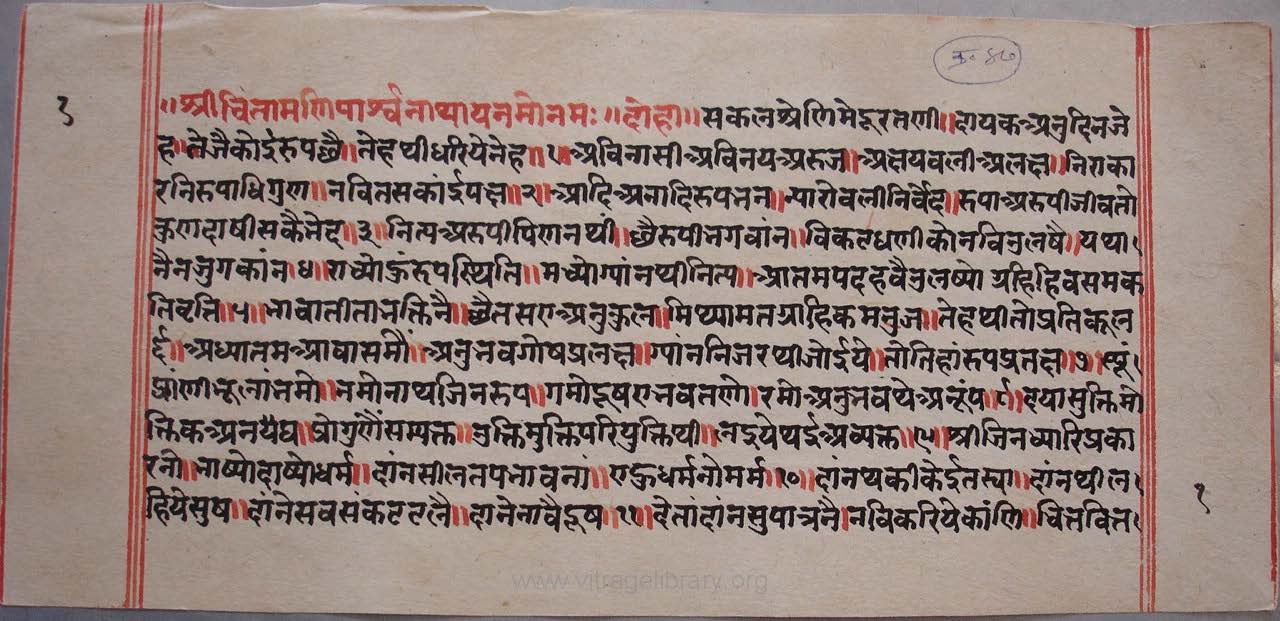 क्र. ४७
१
॥श्रीचिंतामणिपार्श्वनाथायनमोनमः॥दोहा॥सकलश्रेणिमेदूरतणी॥दायकअनुदिनजे
ह॥तेजैकोईरुपछै॥तेहथीधरियेनेह॥१॥अविनासीअविनयअरुज॥अक्षयबलीअलक्ष॥निराका
रनिरुपाधिगुण॥नवितसकांईपक्ष॥२॥आदिअनादिरुपननन॥न्यारोवलीनिर्वेद॥रुपाअरुपीजीवतो
कुणदाषीसकैभेद॥३॥नित्यअरुपीपिणनथी॥छैरुपीभगवांन॥विकलधणीकोनविलषै॥यथा
नैनजुगकांन॥४॥राध्योकुंरुपस्थिति॥मध्योग्यांनथीनित्य॥आतमपदहवैउलष्यो ग्रहिहिवसमक
तिवृत्ति॥५॥भावातीताभक्तिनै॥छैतसरणअनुकुल॥मिथ्यामतग्राहिकमनुज॥तेहथीतोप्रतिकूल
ई॥अध्यातमआवासमौं॥अनुभवगोषप्रलक्ष॥ग्यांननिजरथीजोईये॥तोतिहांरुपप्रतक्ष॥७॥
प्रांणीभूलांतमो॥नमोनाथजिनरुप॥गमोदूषणभवतणो॥रमोअनुभवपंथेअनूंप॥८॥दयामुक्तिमो
क्तिकअनयैघ॥प्रोगुणैंसम्यक्त॥भुक्तिमुक्तिपरियुक्तिथी॥नदुयेथईअव्यक्त॥९॥श्रीजिनच्यारिप्रका
रनो॥भाष्योदाष्योधर्म॥दांनसीलतपभावनां॥एकुधर्मनोमर्म॥१०॥दांनथकीकेईतस्या॥दांनथीलं
हियेसुष॥दांनेसवसंकटटलै॥दानेनावैदूष॥११॥देतांदांनसुपात्रनै।नविकरियेकांणि॥चित्तवित्त
१
www.vitragelibrary.org